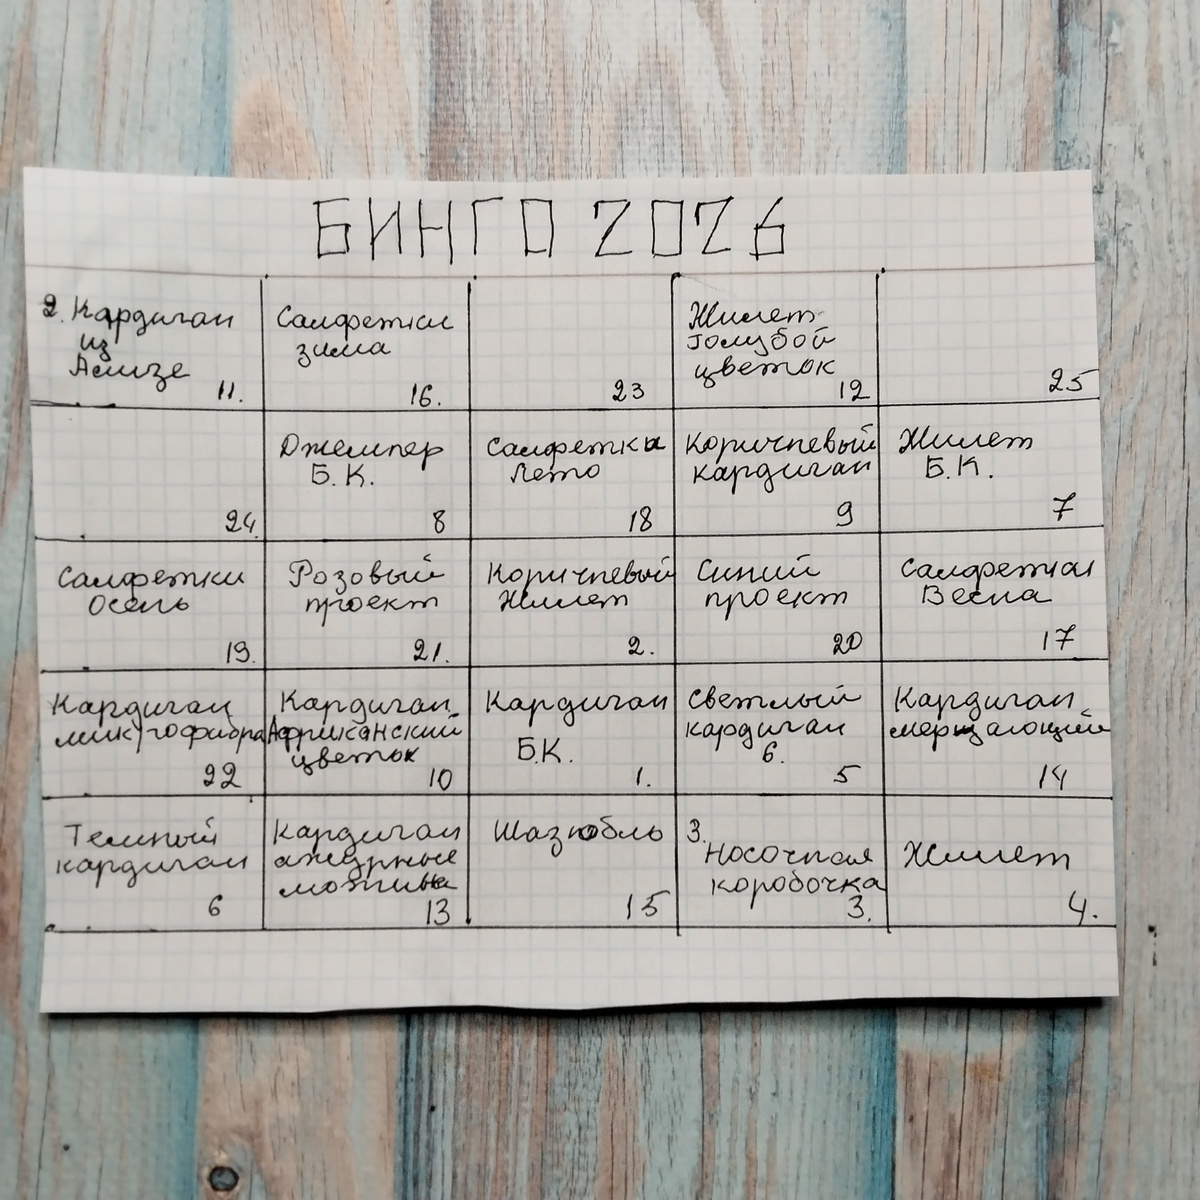 БИНГО 2026
2. Кардиган
из
Ализе
11.
Салфетки
зима
16.
23
Жилет
голубой
цветок
12
25
24.
Джемпер
Б.К.
8
Салфетки
Лето
18
Коричневый
кардиган
9
Жилет
Б.К.
7
Салфетки
Осень
19.
Розовый
проект
21.
Коричневый
Жилет
2.
Синий
проект
20
Салфетки
Весна
17
Кардиган
микрофибра
22
Кардиган
Африканский
цветок
10
Кардиган
Б.К.
1.
Светлый
кардиган
6.
5
Кардиган
мерцающий
14
Темный
кардиган
6
Кардиган
ажурные
мотивы
13
Шазюбль
15
3.
Носочная
коробочка
3.
Жилет
4.